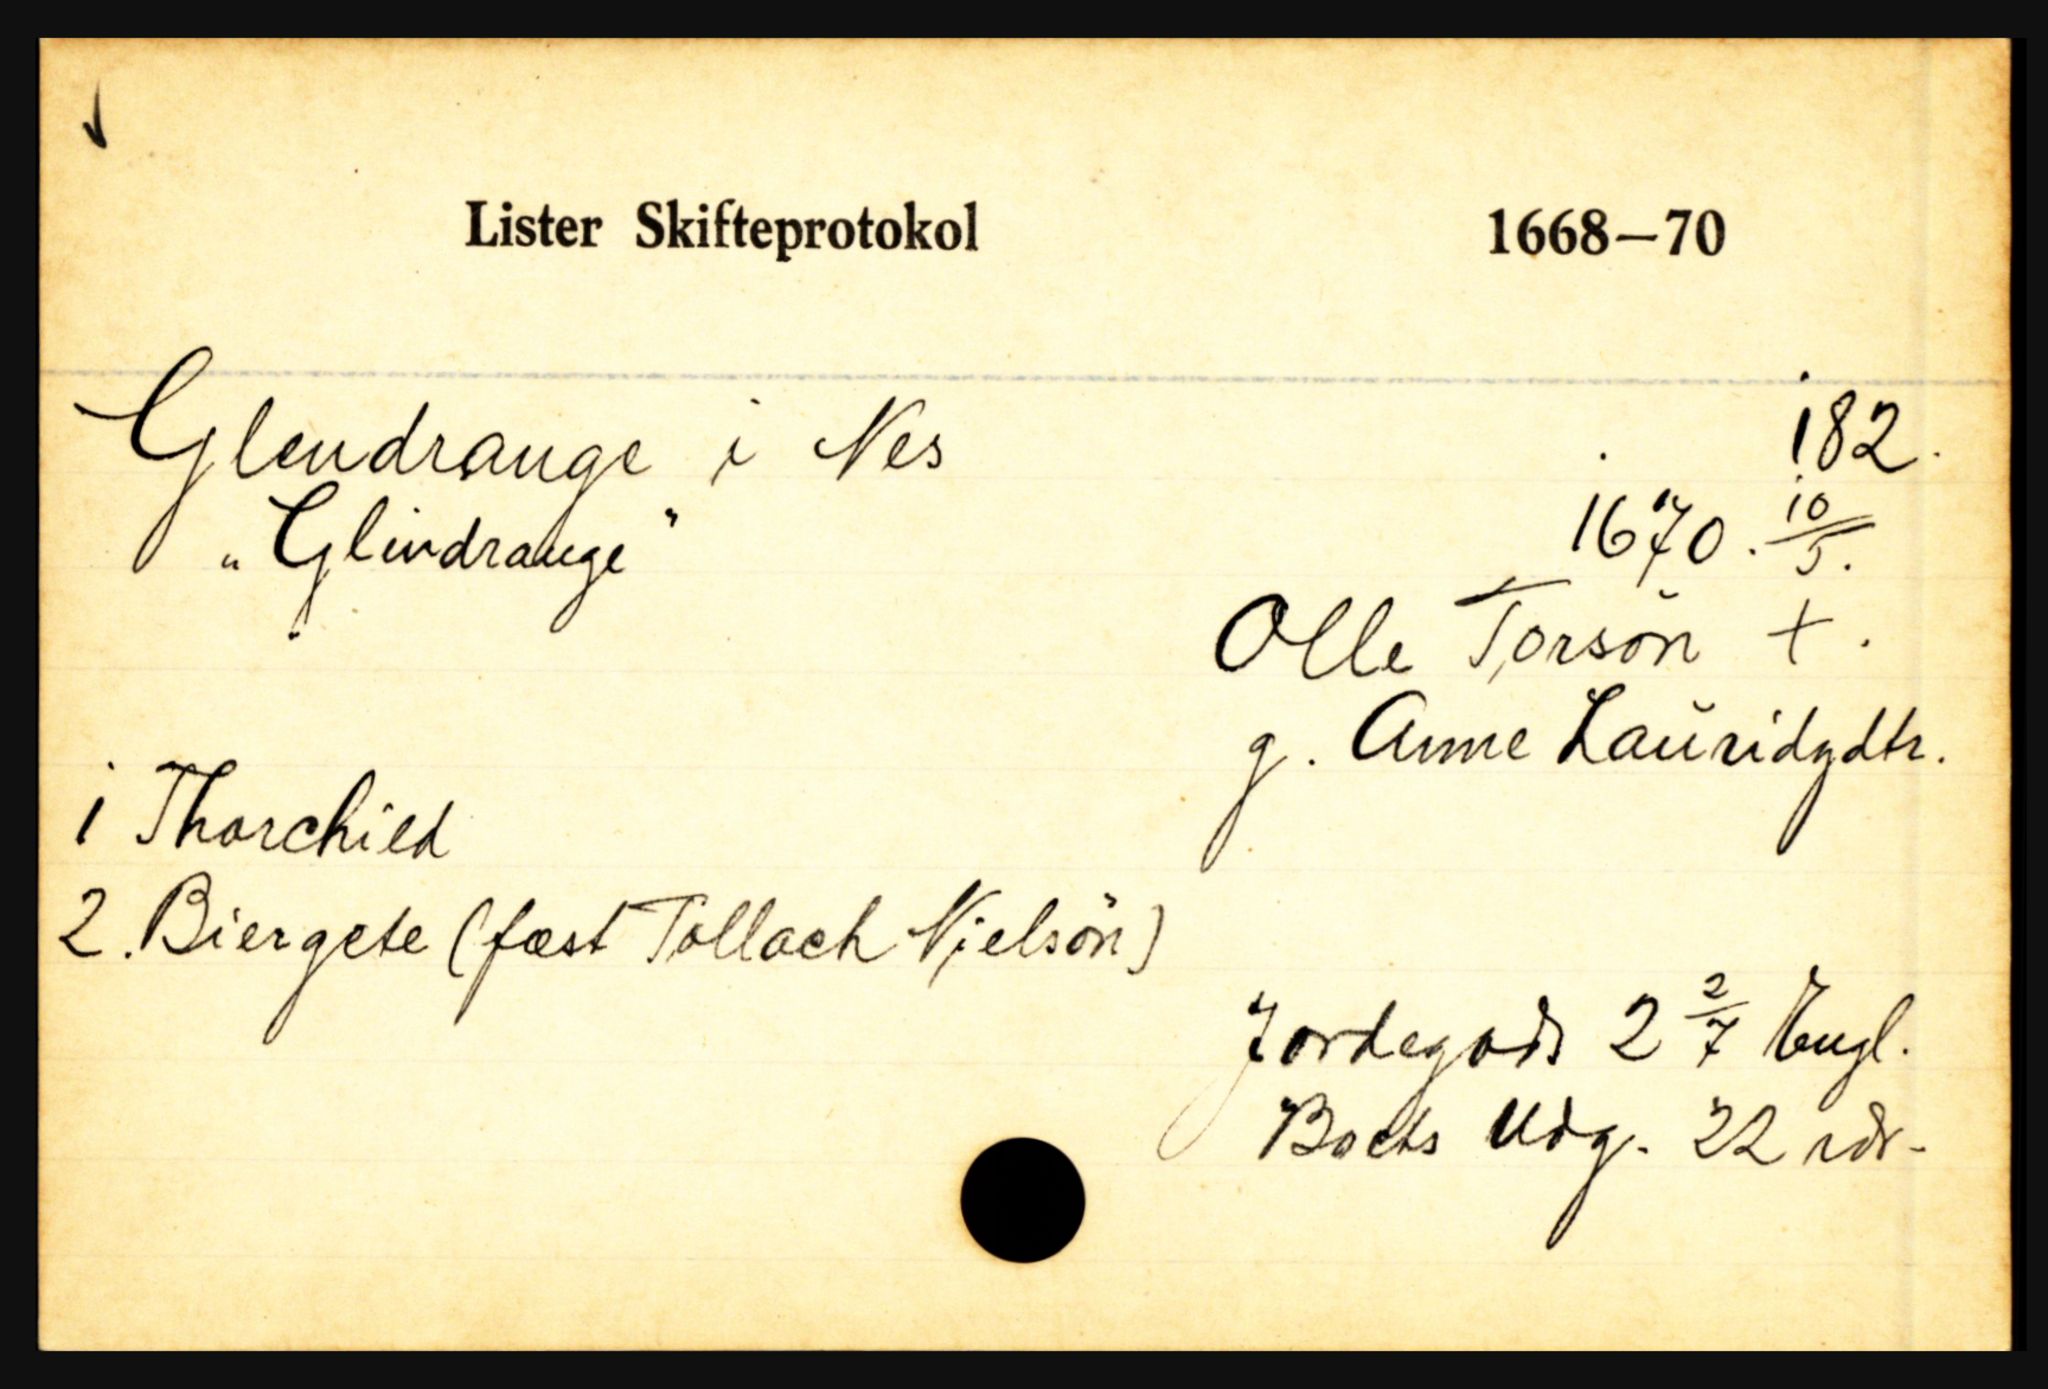 Lister Skifteprotokol 1668–70
Glendrange i Nes 182.
"Glindrange" 1670. 10/5.
Olle Torsön +.
g. Anne Lauridzdtr.
1 Thorchild
2. Biergete (fæst Tollach Nielsön)
Jordegods 2 2/7 Engl.
Boets Udg. 22 rdr.